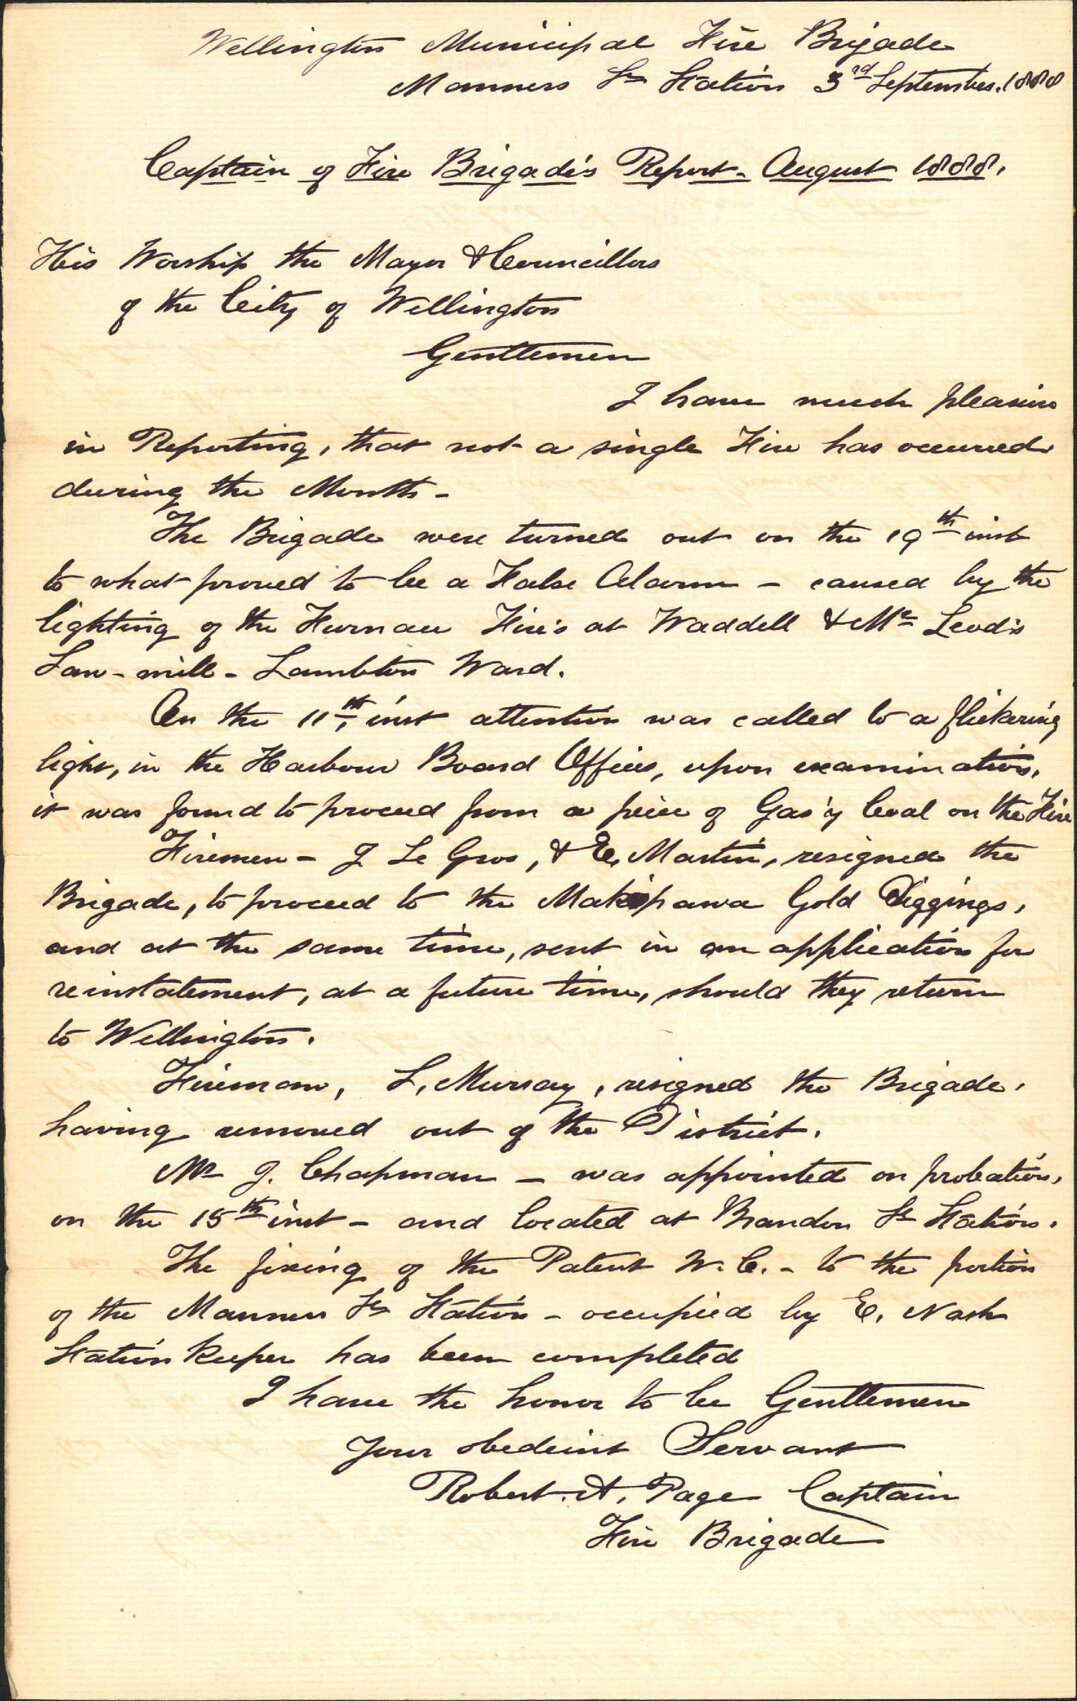 Wellington Municipal Fire Brigade
Manners St Station 3rd September. 1888
Captain of Fire Brigade's Report - August 1888.
His Worship the Mayor & Councillors
of the City of Wellington
Gentlemen
I have much pleasure
in Reporting, that not a single Fire has occurred
during the Month -
The Brigade were turned out on the 19th inst
to what proved to be a False Alarm - caused by the
lighting of the Furnace Fire's at Waddell & McLeod's
Saw-mill - Lambton Ward.
On the 11th inst attention was called to a flickering
light, in the Harbour Board Offices, upon examination,
it was found to proceed from a piece of Gas'y Coal on the Fire
Firemen - J Le Gros, & E. Martin, resigned the
Brigade, to proceed to the Makipawa Gold Diggings,
and at the same time, sent in an application for
reinstatement, at a future time, should they return
to Wellington.
Fireman, L. Murray, resigned the Brigade,
having removed out of the District.
Mr J. Chapman - was appointed on probation,
on the 15th inst - and located at Brandon St Station.
The fixing of the Patent W.C. - to the portion
of the Manners St Station - occupied by E. Nash
Station Keeper has been completed
I have the honor to be Gentlemen
Your obedeint Servant
Robert. A. Page Captain
Fire Brigade